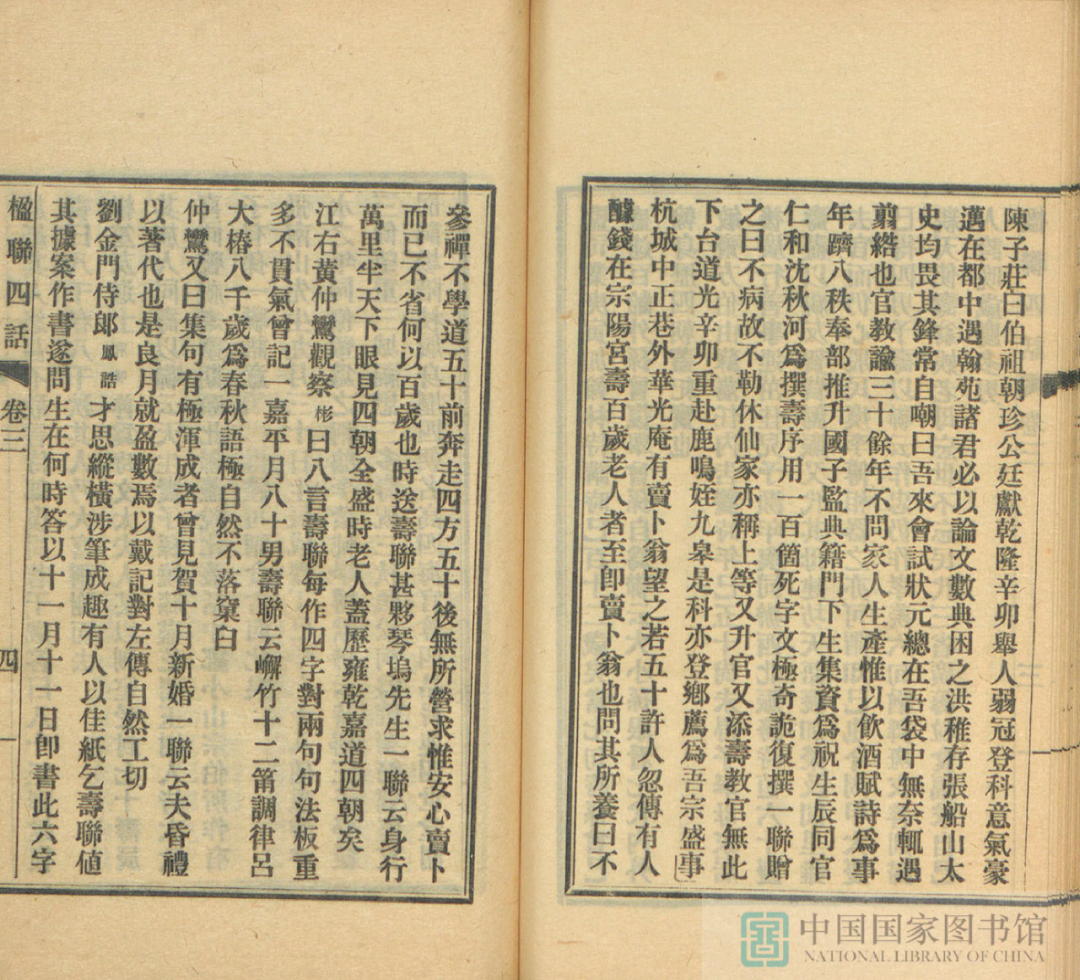 陳子莊曰伯祖朝珍公廷獻乾隆辛卯舉人弱冠登科意氣豪
邁在都中遇翰苑諸君必以論文數典困之洪稚存張船山太
史均畏其鋒常自嘲曰吾來會試狀元總在吾袋中無奈輒遇
翦綹也官教諭三十餘年不問家人生產惟以飲酒賦詩爲事
年躋八秩奉部推升國子監典籍門下生集資爲祝生辰同官
仁和沈秋河爲撰壽序用一百箇死字文極奇詭復撰一聯贈
之曰不病故不勒休仙家亦稱上等又升官又添壽教官無此
下台道光辛卯重赴鹿鳴姪九皋是科亦登鄉薦爲吾宗盛事
杭城中正巷外華光庵有賣卜翁望之若五十許人忽傳有人
醵錢在宗陽宮壽百歲老人者至卽賣卜翁也問其所養曰不
參禪不學道五十前奔走四方五十後無所營求惟安心賣卜
而已不省何以百歲也時送壽聯甚夥琴塢先生一聯云身行
萬里半天下眼見四朝全盛時老人蓋歷雍乾嘉道四朝矣
江右黃仲鸞觀察彬曰八言壽聯每作四字對兩句句法板重
多不貫氣曾記一嘉平月八十男壽聯云嶰竹十二笛調律呂
大椿八千歲爲春秋語極自然不落窠臼
仲鸞又曰集句有極渾成者曾見賀十月新婚一聯云夫昏禮
以著代也是良月就盈數焉以戴記對左傳自然工切
劉金門侍郎鳳誥才思縱橫涉筆成趣有人以佳紙乞壽聯値
其據案作書遂問生在何時答以十一月十一日卽書此六字
楹聯四話 卷三 四
中国国家图书馆
NATIONAL LIBRARY OF CHINA